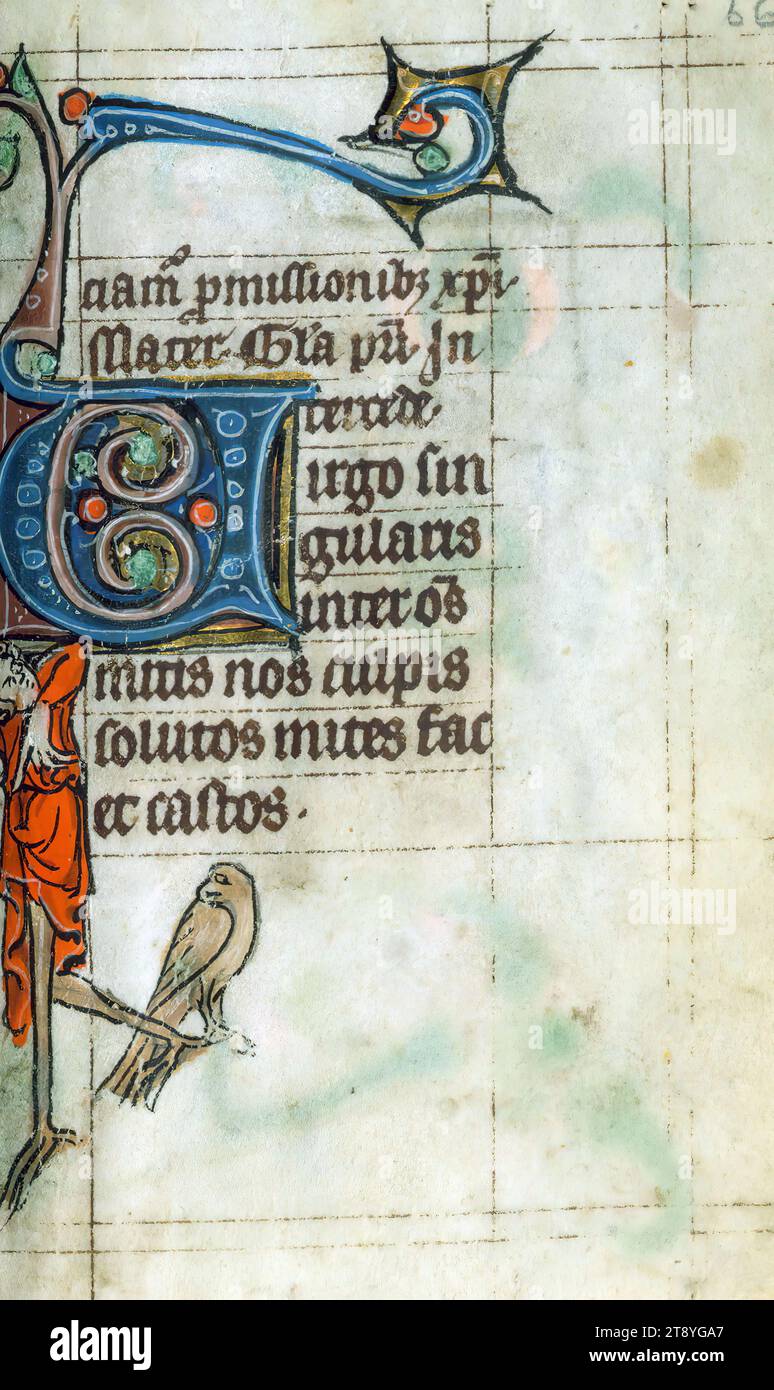 66
ciam᷑ ꝓmissionibꝫ xp̄i.
Mater. Gr̄a In
tercede.
Virgo sin
gularis
inter om̄s
mitis nos culpis
solutos mites fac
et castos.
alamy
alamy
a
a
a
alamy
Image ID: 2T8YGA7
www.alamy.com